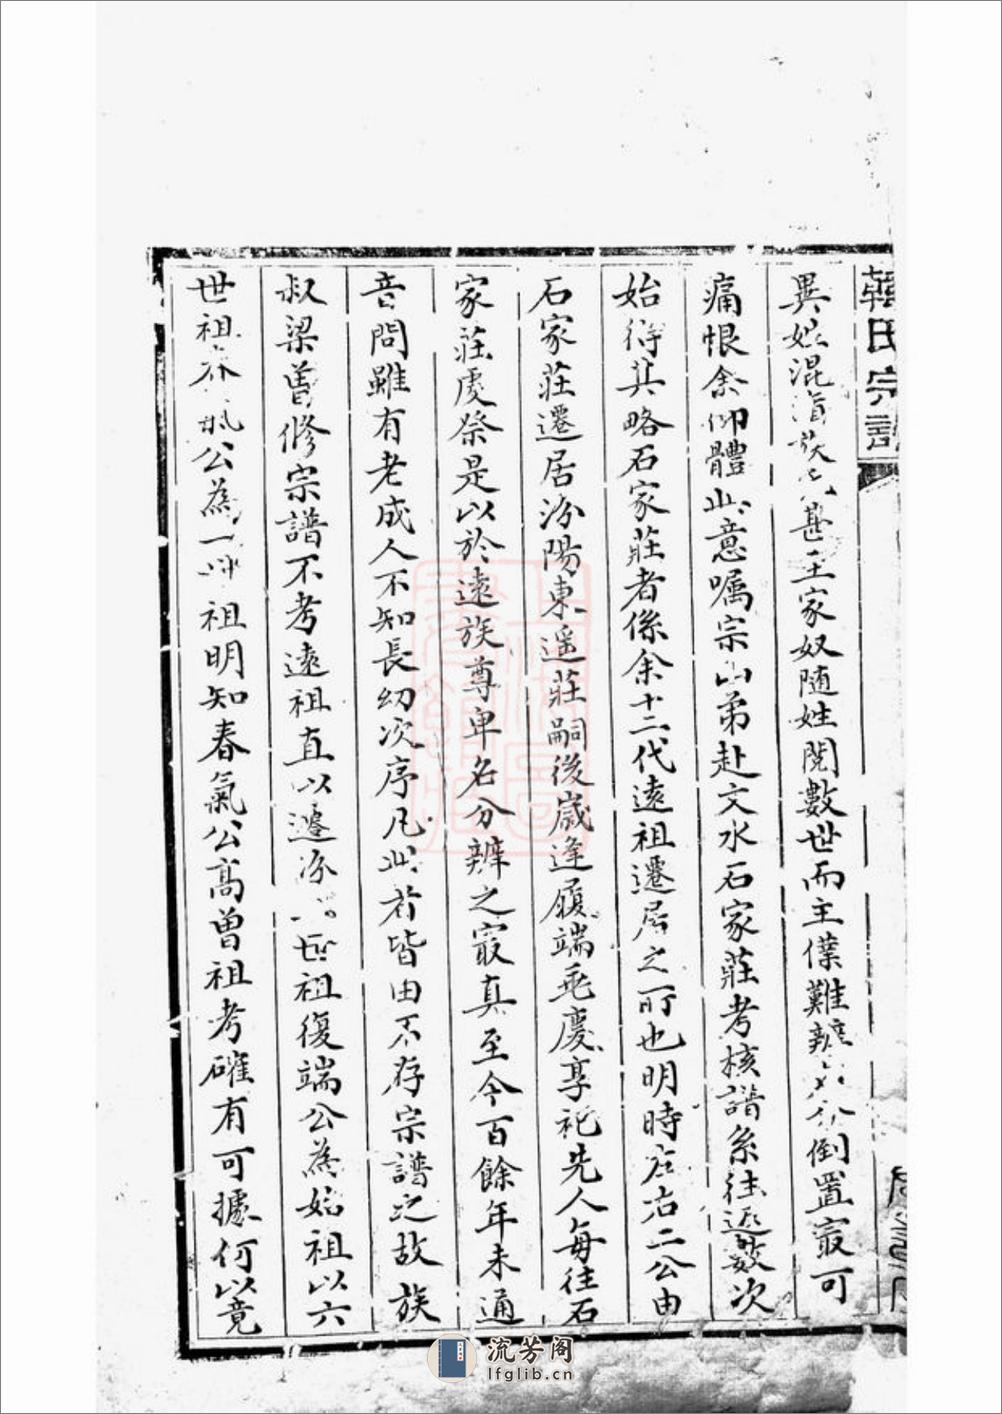 韓氏宗譜
異姓混淆族 甚至家奴隨姓閱數世而主僕難辨 倒置最可
痛恨余仰體此意嘱宗山弟赴文水石家莊考核譜系往返數次
始得其略石家莊者係余十二代遠祖遷居之所也明時 右二公由
石家莊遷居汾陽東遥莊嗣後歲逢履端垂慶享祀先人每往石
家莊虔祭是以於遠族尊卑名分辨之最真至今百餘年未通
音問雖有老成人不知長幼次序凡此者皆由不存宗譜之故族
叔梁曾修宗譜不考遠祖直以遷汾 世祖復端公為始祖以六
世祖春氣公為一 祖明知春氣公高曾祖考確有可據何以竟
流芳阁
lfglib.cn